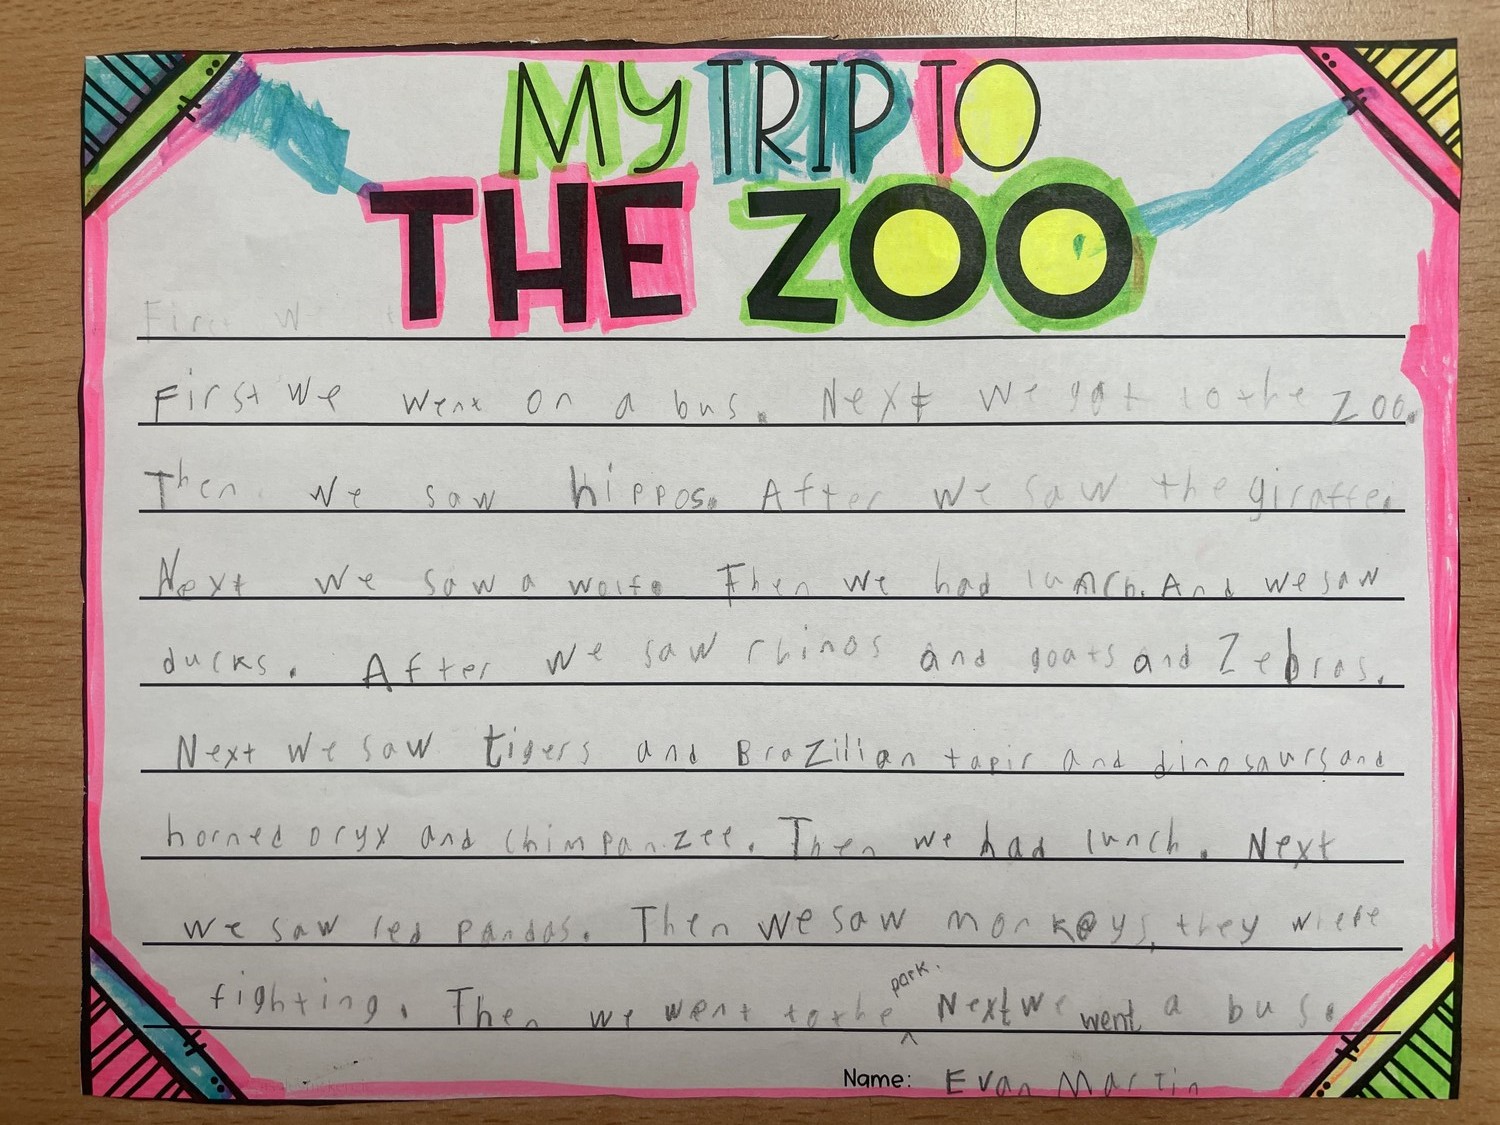 MY TRIP TO
THE ZOO
First W
First We went on a bus. Next we got to the Zoo.
Then We saw hippos. After We saw the giraffe.
Next We saw a wolf. Then we had lunch. And we saw
ducks. After We saw rhinos and goats and Zebras.
Next We saw tigers and BraZilian tapir and dinosaurs and
horned oryx and Chimpanzee. Then we had lunch. Next
we saw red pandas. Then We saw monkeys, they where
park.
fighting. Then we went to the ^ Next We went a bus.
Name: Evan Martin